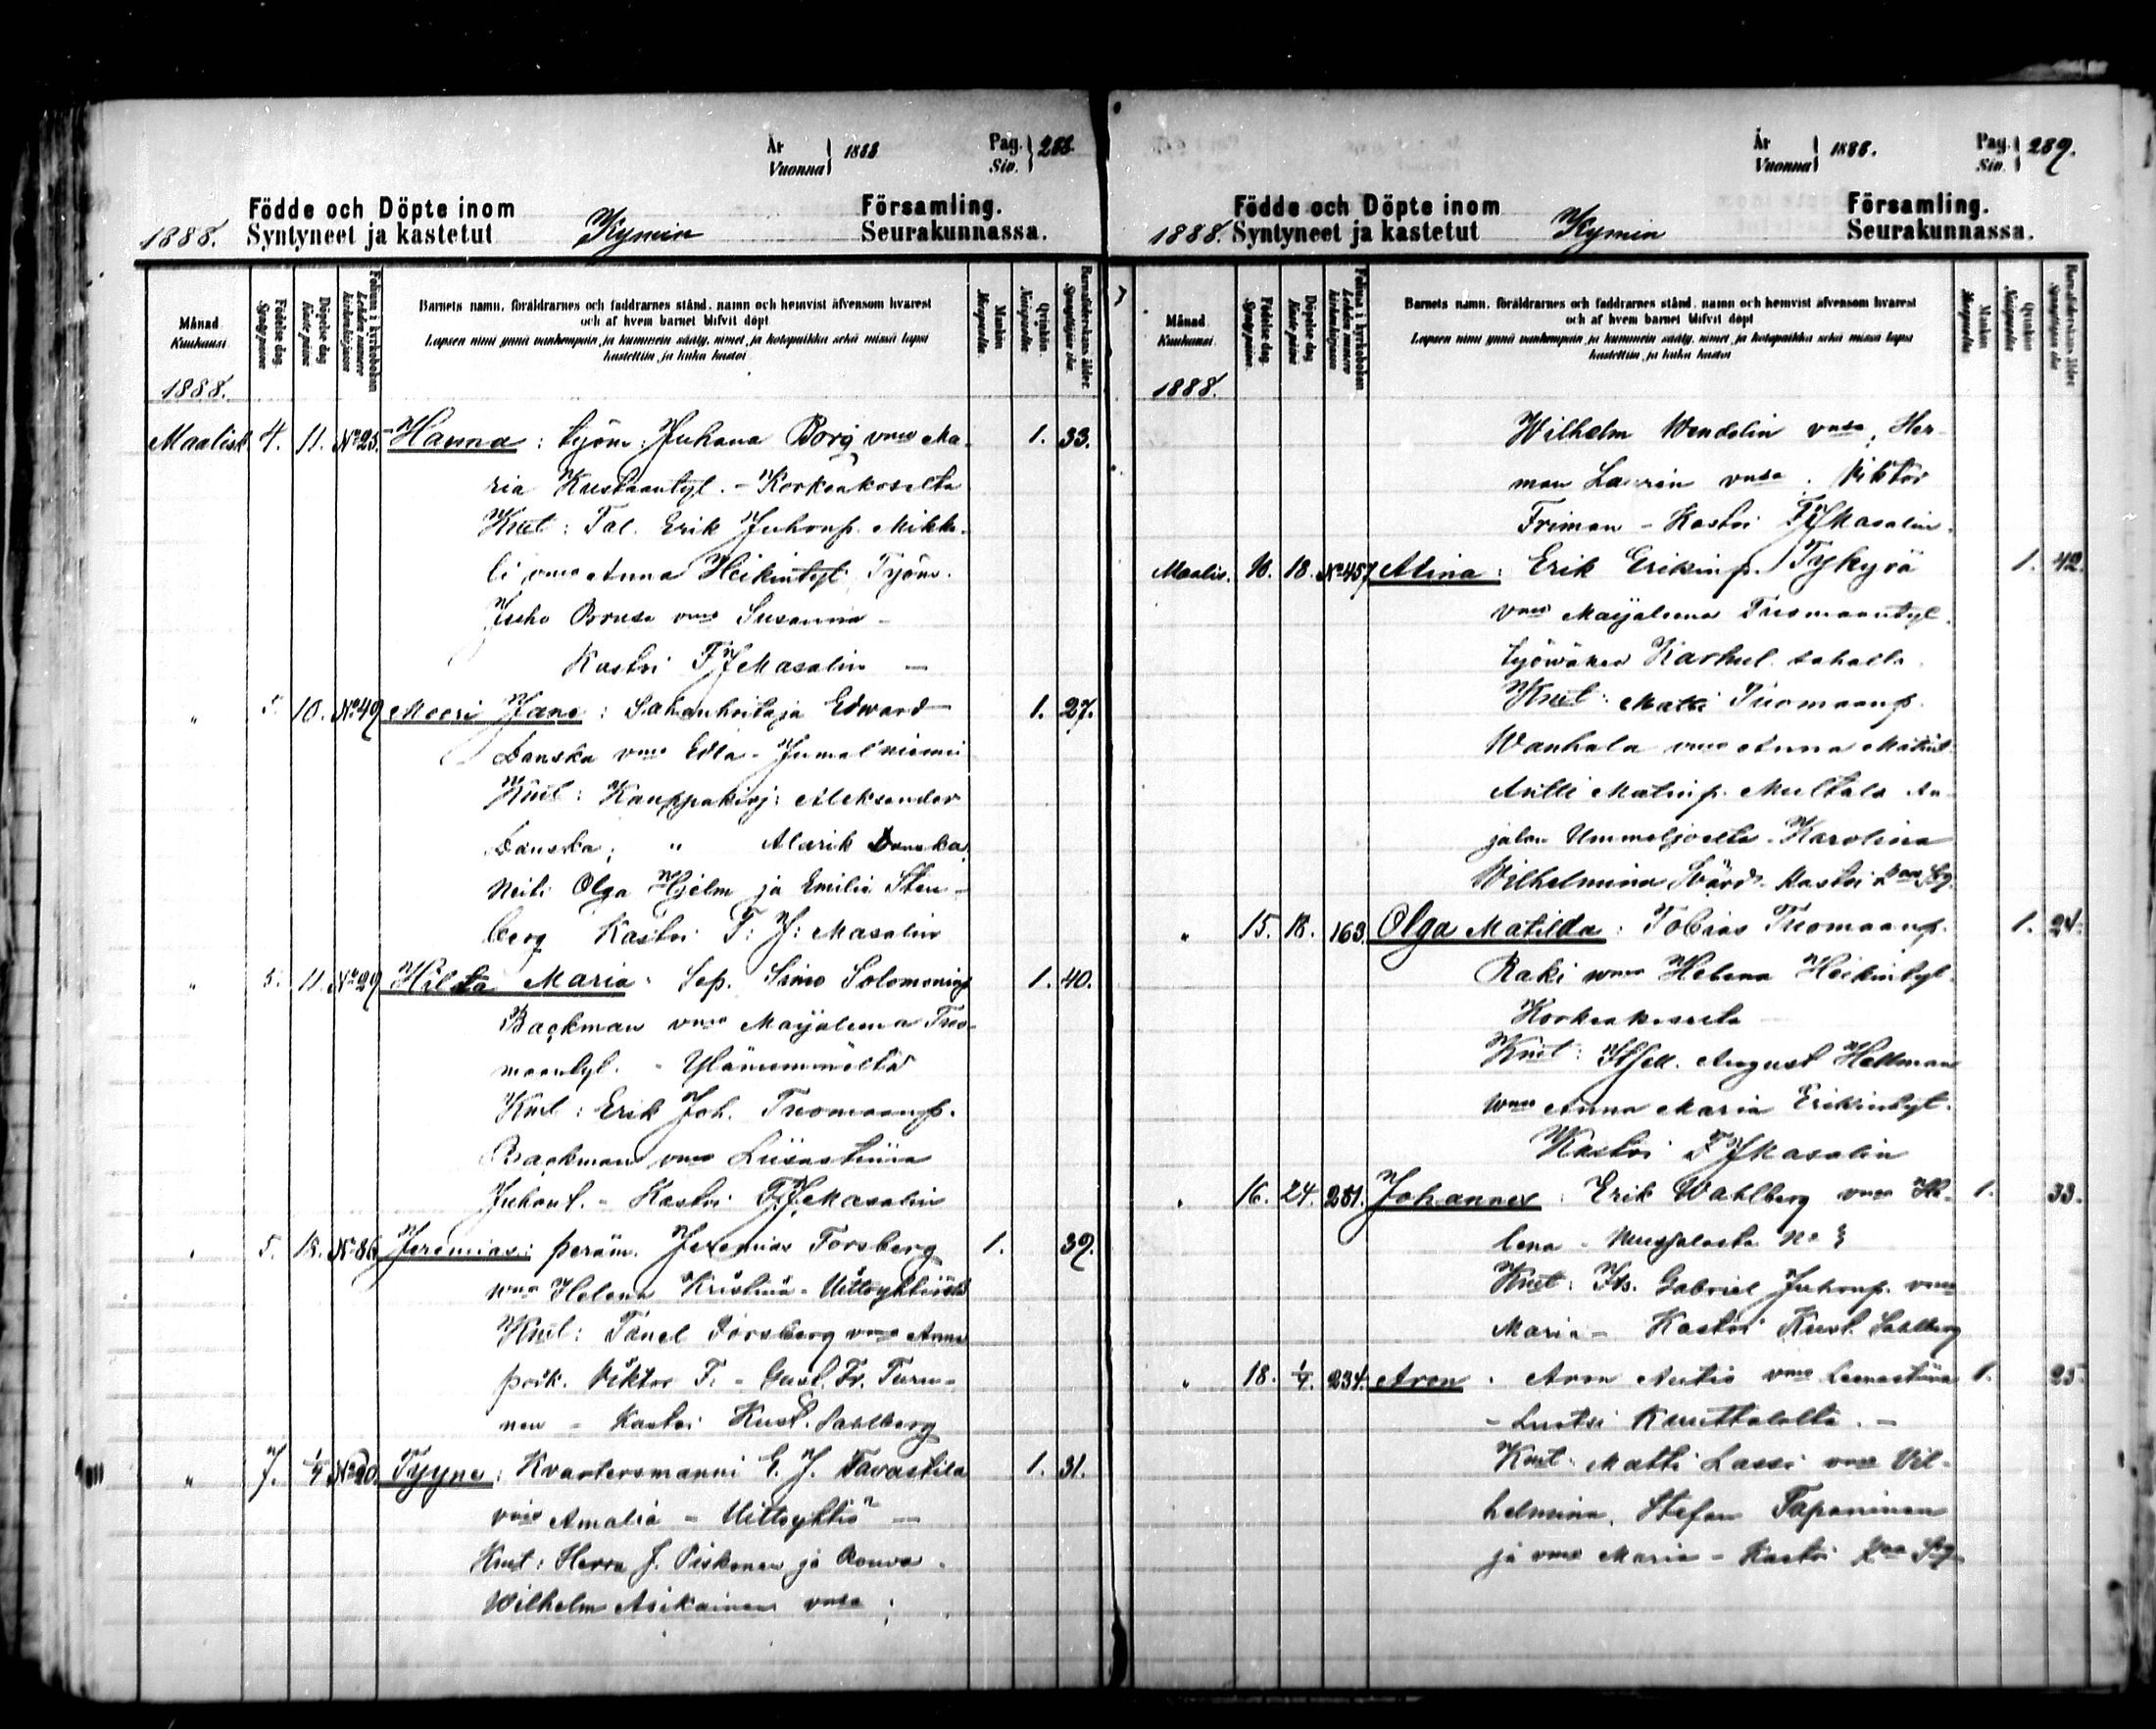 År
Vuonna } 1888
Pag.
Siv. } 288.
Födde och Döpte inom Församling.
1888. Syntyneet ja kastetut Kymin Seurakunnassa.
Månad
Kuukausi
Födelse dag.
Syntypäivä
Döpelse dag
Kaste päivä
Folium i kyrkoboken
Lehden numero kirkonkirjassa
Barnets namn, föräldrarnes och faddrarnes stånd, namn och hemvist äfvensom hvarest
och af hvem barnet blifvit döpt
Lapsen nimi ynnä vanhempain ja kummein sääty, nimet ja kotopaikka sekä missä lapsi
kastettiin ja kuka kastoi
Mankön
Miespuolia
Qvinkön.
Naispuolia
Barnaföderskans ålder.
Synnyttäjän ikä
1888.
Maalisk. 4. 11. No 25. Hanna : työm: Juhana Borg vmo Ma- 1. 33.
ria Kustaantyt. - Korkeakoselta
Kmt: Tal. Erik Juhonp. Mikko-
li vmo Anna Heikintyt. Työm.
Juho Ponsa vmo Susanna -
Kastoi F J Masalin -
" 5. 10. No 49 Meeri Jane : Sahanhoitaja Edward 1. 27.
Danska vmo Edla - Jumalniemi
Kmt: Kauppakirj: Aleksander
Danska; " Alarik Danska,
Neiti Olga Hjelm ja Emilia Sten-
berg Kastoi F: J: Masalin
" 5. 11. No 29 Hilda Maria : Sep. Simo Solomoninp. 1. 40.
Backman vmo Maijaleena Tuo-
maantyt. - Ylänummelta
Kmt: Erik Joh. Tuomaanp.
Backman vmo Liisastiina
Juhont. - Kastoi F. J. Masalin
" 5. 18. No 86 Jeremias : peräm. Jeremias Forsberg 1. 39.
vmo Helena Kristina - Uittoyhtiöstä
Kmt: Tanel Forsberg vmo Anna
poik. Viktor F. - Gust. Fr. Turu-
nen - Kastoi Kust. Sahlberg
" 7. 1/4 No 20. Tyyne : Kvartersmanni E. J. Tavastila 1. 31.
vmo Amalia - Uittoyhtiö -
Kmt: Herra J. Piskonen ja Rouva.
Wilhelm Asikainen vmsa ;
År
Vuonna } 1888.
Pag.
Siv. } 289.
Födde och Döpte inom Församling.
1888. Syntyneet ja kastetut Kymin Seurakunnassa.
Månad
Kuukausi
Födelse dag.
Syntypäivä
Döpelse dag
Kaste päivä
Folium i kyrkoboken
Lehden numero kirkonkirjassa
Barnets namn, föräldrarnes och faddrarnes stånd, namn och hemvist äfvensom hvarest
och af hvem barnet blifvit döpt
Lapsen nimi ynnä vanhempain ja kummein sääty, nimet ja kotopaikka sekä missä lapsi
kastettiin ja kuka kastoi
Mankön
Miespuolia
Qvinkön.
Naispuolia
Barnaföderskans ålder.
Synnyttäjän ikä
1888.
Wilhelm Wendelin vmsa, Her-
man Laurin vmsa. Viktor
Friman - Kastoi F J Masalin.
Maalis. 10. 18. No 457 Alina : Erik Erikinp. Tyskyrä 1. 42.
vmo Maijaleena Tuomaantyt.
työväkeä Karhul. sahalla.
Kmt: Matti Tuomaanp.
Wanhala vmo Anna Matint.
Antti Matinp. Multala An-
jalan Ummeljoelta - Karolina
Wilhelmina Svärd. Kastoi
" 15. 18. 163. Olga Matilda : Tobias Tuomaanp. 1. 24.
Raki vmo Helena Heikintyt.
Korkeakoselta
Kmt: August Hellman
vmo Anna Maria Erikintyt.
Kastoi F J Masalin
" 16. 24. 251. Johannes : Erik Wahlberg vmo He- 1. 33.
lena - Mussalosta No 3
Kmt: Its. Gabriel Juhonp. vmo
Maria - Kastoi Kust. Sahlberg
" 18. 1/4. 234. Aron : Aron Autio vmo Leenastiina 1. 25.
- Luotsi Kuuttalolta. -
Kmt: Matti Lassi vmo Vil-
helmina, Stefan Taponinen
ja vmo Maria - Kastoi